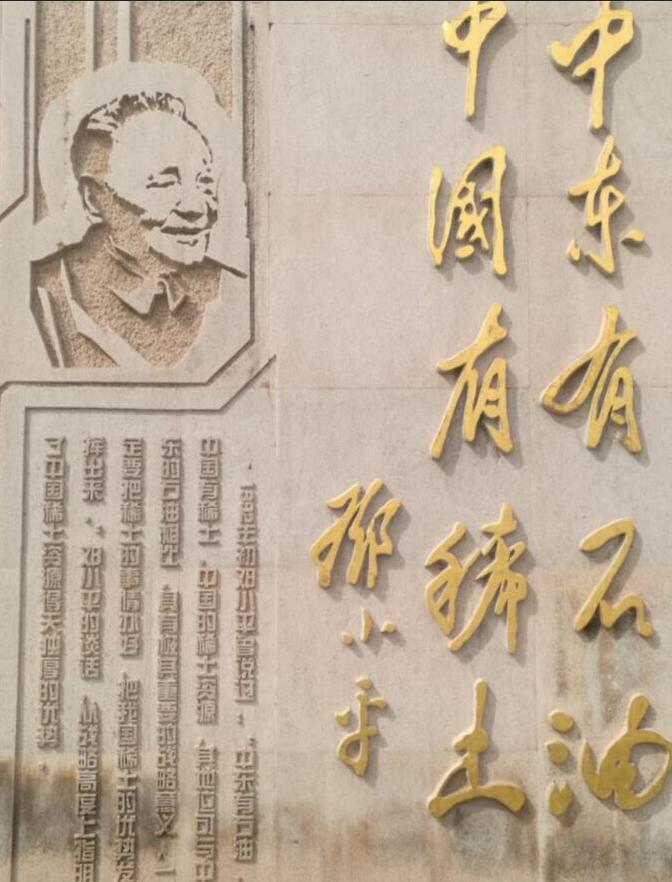 中东有石油
中國有稀土
鄧小平
1992年初邓小平曾说过：“中东有石油，
中国有稀土，中国的稀土资源，其地位可与中
东的石油相比，具有极其重要的战略意义，一
定要把稀土的事情办好，把我国稀土的优势发
挥出来。”邓小平的谈话，从战略高度上指明
了中国稀土资源得天独厚的优势。